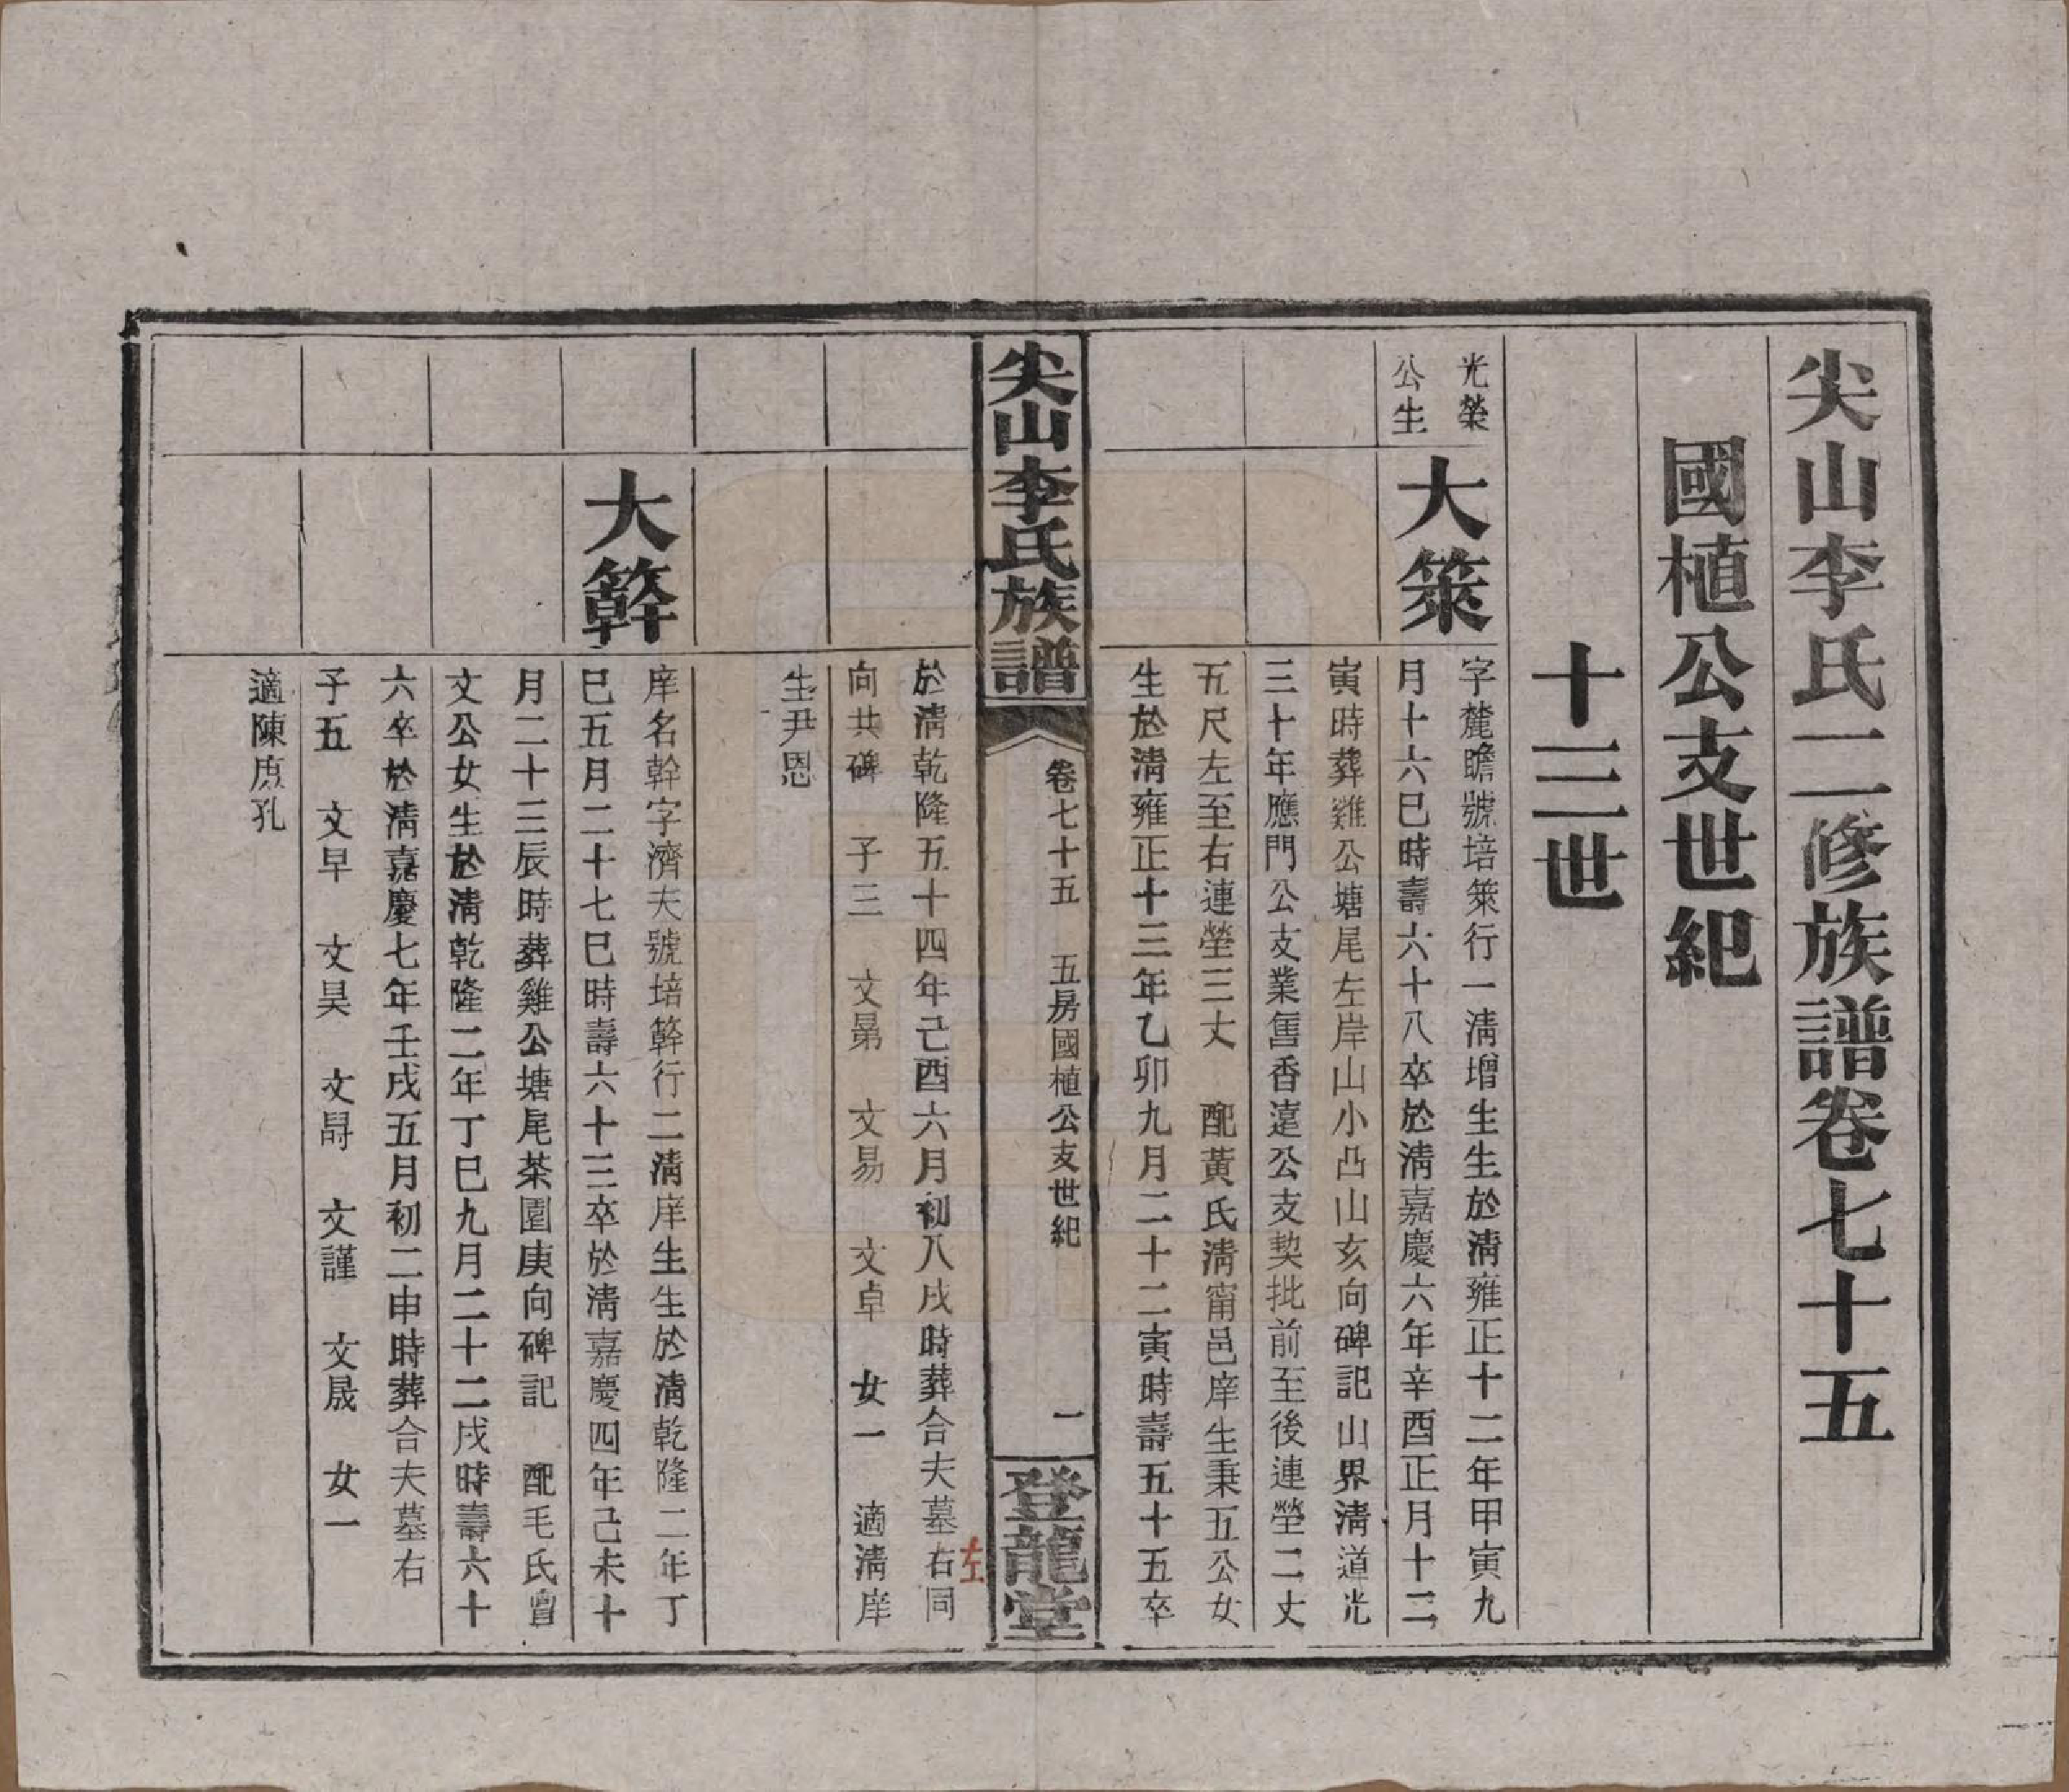 尖山李氏二修族譜卷七十五
國植公支世紀
十三世
光榮
公生
大策
字麓瞻號培策行一清增生生於清雍正十二年甲寅九
月十六巳時壽六十八卒於清嘉慶六年辛酉正月十二
寅時葬雞公塘尾左岸山小凸山亥向碑記山界清道光
三十年應門公支業售香遠公支契批前至後連塋二丈
五尺左至右連塋三丈 配黃氏清甯邑庠生秉五公女
生於清雍正十三年乙卯九月二十二寅時壽五十五卒
尖山李氏族譜
卷七十五 五房國植公支世紀
一
登龍堂
於清乾隆五十四年己酉六月初八戌時葬合夫墓右同
左
向共碑 子三 文晜 文易 文卓 女一 適清庠
生尹恩
大簳
庠名幹字濟夫號培簳行二清庠生生於清乾隆二年丁
巳五月二十七巳時壽六十三卒於清嘉慶四年己未十
月二十三辰時葬雞公塘尾茶園庚向碑記 配毛氏曾
文公女生於清乾隆二年丁巳九月二十二戌時壽六十
六卒於清嘉慶七年壬戌五月初二申時葬合夫墓右
子五 文早 文昊 文 文謹 文晟 女一
適陳庶孔